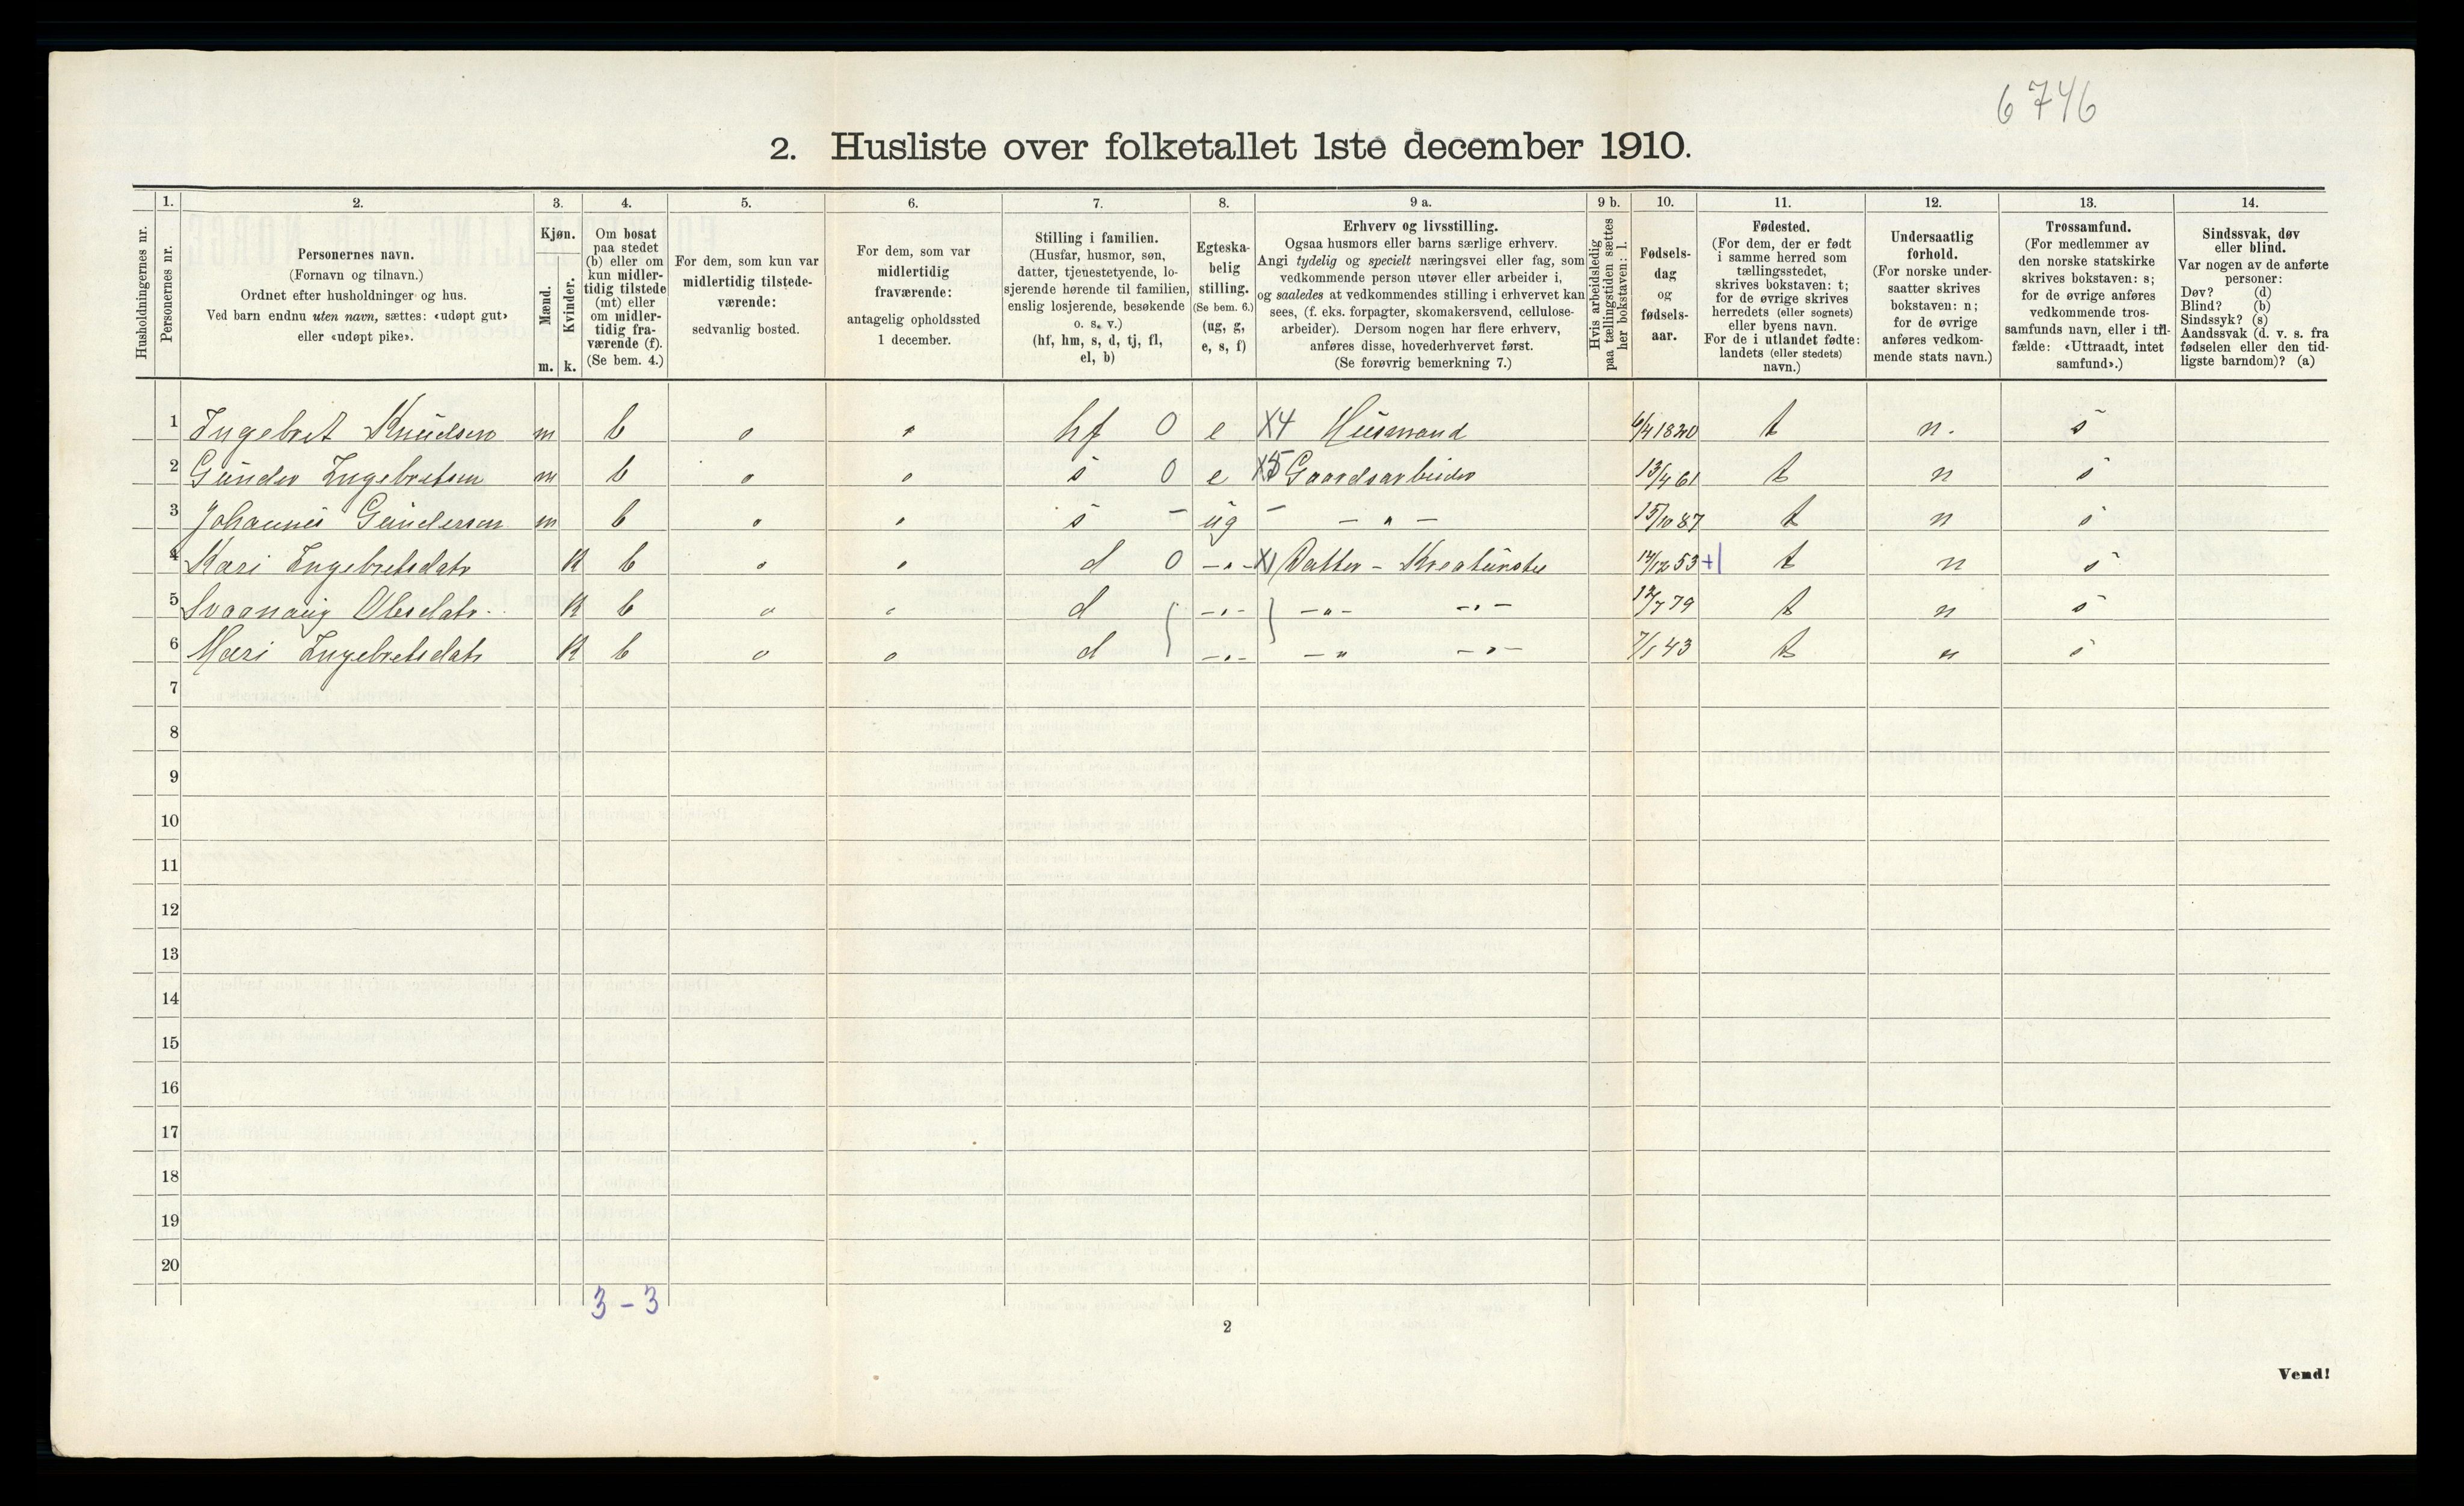 6746
2. Husliste over folketallet 1ste december 1910.
Husholdningernes nr.
1. Personernes nr.
2. Personernes navn.
(Fornavn og tilnavn.)
Ordnet efter husholdninger og hus.
Ved barn endnu uten navn, sættes: «udøpt gut»
eller «udøpt pike».
3. Kjøn.
Mænd. m.
Kvinder. k.
4. Om bosat
paa stedet
(b) eller om
kun midler-
tidig tilstede
(mt) eller
om midler-
tidig fra-
værende (f).
(Se bem. 4.)
5. For dem, som kun var
midlertidig tilstede-
værende:
sedvanlig bosted.
6. For dem, som var
midlertidig
fraværende:
antagelig opholdssted
1 december.
7. Stilling i familien.
(Husfar, husmor, søn,
datter, tjenestetyende, lo-
sjerende hørende til familien,
enslig losjerende, besøkende
o. s. v.)
(hf, hm, s, d, tj, fl,
el, b)
8. Egteska-
belig
stilling.
(Se bem. 6.)
(ug, g,
e, s, f)
9 a. Erhverv og livsstilling.
Ogsaa husmors eller barns særlige erhverv.
Angi tydelig og specielt næringsvei eller fag, som
vedkommende person utøver eller arbeider i,
og saaledes at vedkommendes stilling i erhvervet kan
sees, (f. eks. forpagter, skomakersvend, cellulose-
arbeider). Dersom nogen har flere erhverv,
anføres disse, hovederhvervet først.
(Se forøvrig bemerkning 7.)
9 b. Hvis arbeidsledig
paa tællingstiden sættes
her bokstaven: l.
10. Fødsels-
dag
og
fødsels-
aar.
11. Fødested.
(For dem, der er født
i samme herred som
tællingsstedet,
skrives bokstaven: t;
for de øvrige skrives
herredets (eller sognets)
eller byens navn.
For de i utlandet fødte:
landets (eller stedets)
navn.)
12. Undersaatlig
forhold.
(For norske under-
saatter skrives
bokstaven: n;
for de øvrige
anføres vedkom-
mende stats navn.)
13. Trossamfund.
(For medlemmer av
den norske statskirke
skrives bokstaven: s;
for de øvrige anføres
vedkommende tros-
samfunds navn, eller i til-
fælde: «Uttraadt, intet
samfund».)
14. Sindssvak, døv
eller blind.
Var nogen av de anførte
personer:
Døv? (d)
Blind? (b)
Sindssyk? (s)
Aandssvak (d. v. s. fra
fødselen eller den tid-
ligste barndom)? (a)
1 Ingebret Knudsen m b o o hf 0 e X4 Husmand 6/4 1820 t n. s
2 Gunder Ingebretsen m b o o s 0 e X5 Gaardsarbeider 13/4 61 t n s
3 Johannes Gundersen m b o o s - ug - - " - 15/10 87 t n s
4 Kari Ingebretsdatr K b o o d 0 - " - X1 Datter - Kreaturstel 14/12 53 +1 t n s
5 Svaanaug Olesdatr. K b o o d - " - - " - - " - 12/7 79 t n s
6 Mari Ingebretsdatr K b o o d - " - - " - " - 7/1 43 t n s
7
8
9
10
11
12
13
14
15
16
17
18
19
20
3 - 3
2
Vend!